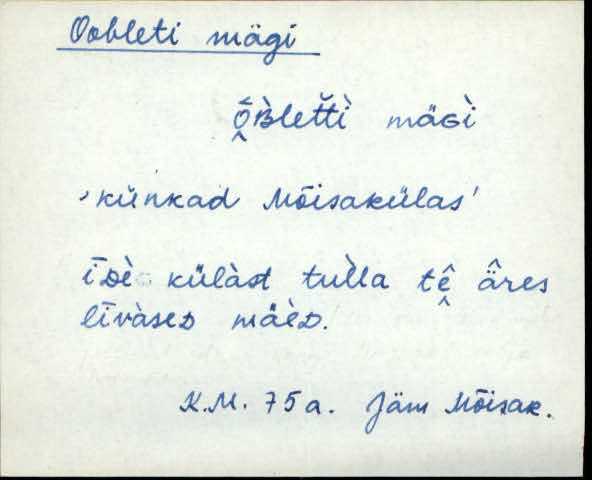 Oobleti mägi
ō̭ʙ̀letìì mäɢì
'künkad Mõisakülas'
īᴅè külàst tulla tḙ̂ âres
līvàseᴅ mäèᴅ.
K.M. 75a. Jäm Mõisak.